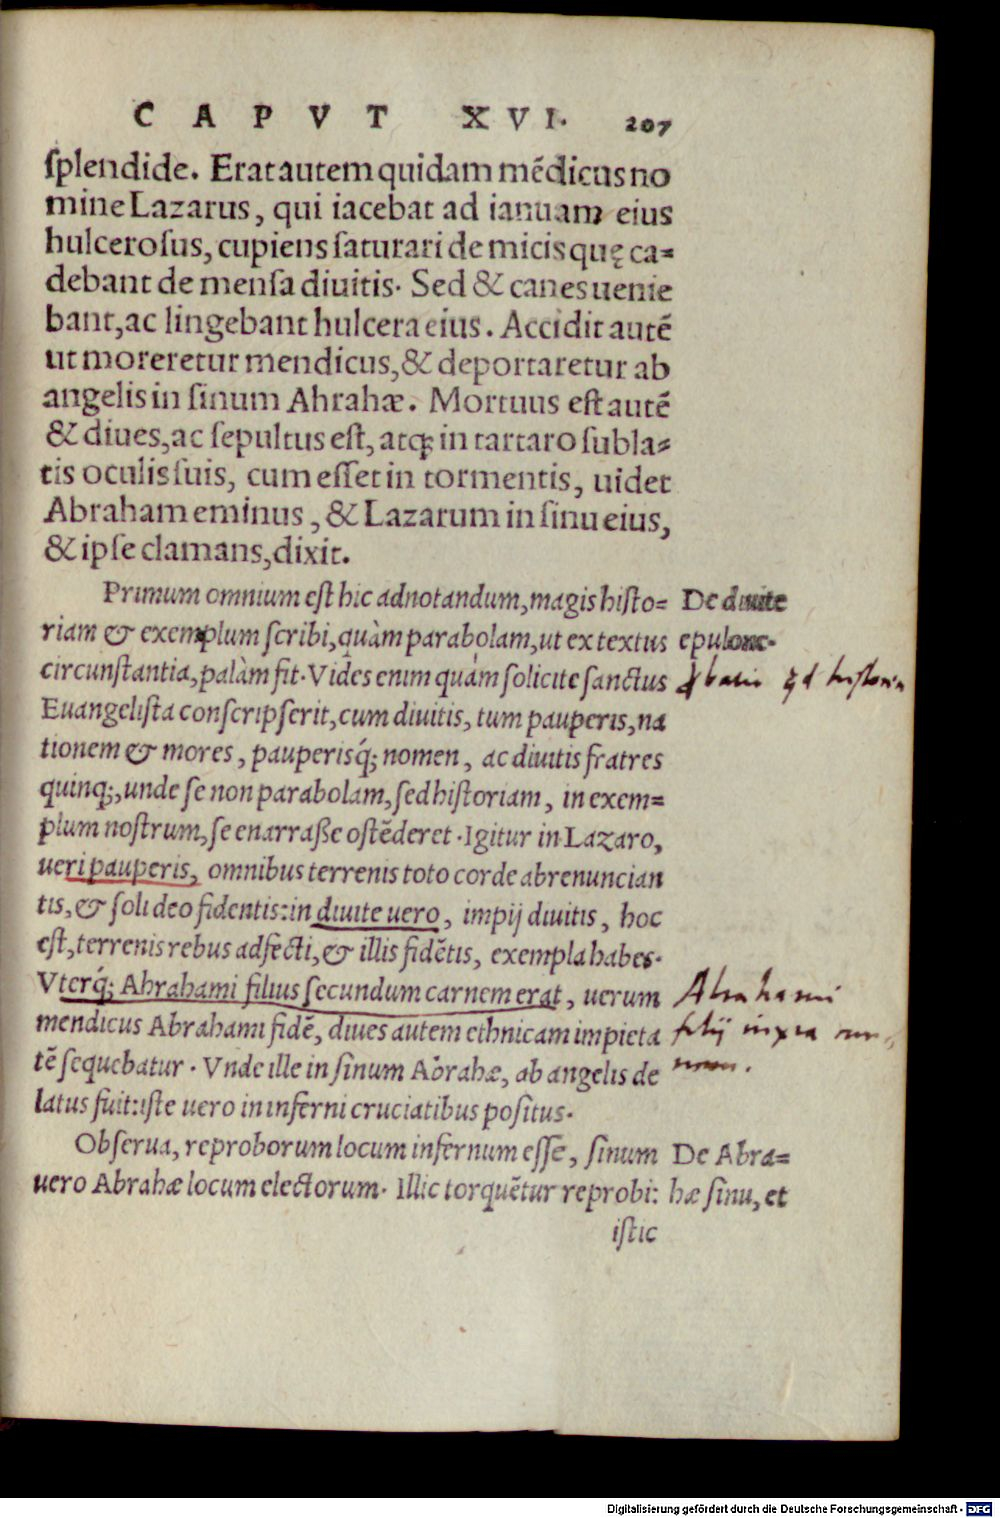 CAPVT XVI. 207
splendide. Erat autem quidam mẽdicus no
mine Lazarus, qui iacebat ad ianuam eius
hulcerosus, cupiens saturari de micis quę ca=
debant de mensa diuitis. Sed & canes uenie
bant, ac lingebant hulcera eius. Accidit autẽ
ut moreretur mendicus, & deportaretur ab
angelis in sinum Ahrahæ. Mortuus est autẽ
& diues, ac sepultus est, atq; in tartaro subla=
tis oculis suis, cum esset in tormentis, uidet
Abraham eminus, & Lazarum in sinu eius,
& ipse clamans, dixit.
Primum omnium est hic adnotandum, magis histo= De diuite
riam & exemplum scribi, quàm parabolam, ut ex textus epulone.
circunstantia, palàm fit. Vides enim quám solicite sanctus
Euangelista conscripserit, cum diuitis, tum pauperis, na
tionem & mores, pauperisq́; nomen, ac diuitis fratres
quinq;, unde se non parabolam, sed historiam, in exem=
plum nostrum, se enarraße ostẽderet. Igitur in Lazaro,
ueri pauperis, omnibus terrenis toto corde abrenuncian
tis, & soli deo fidentis: in diuite uero, impij diuitis, hoc
est, terrenis rebus adfecti, & illis fidẽtis, exempla habes.
Vterq́; Ahrahami filius secundum carnem erat, uerum Abrahami
mendicus Abrahami fidẽ, diues autem ethnicam impieta filij iuxta
tẽ sequebatur. Vnde ille in sinum Abrahæ, ab angelis de
latus fuit: iste uero in inferni cruciatibus positus.
Obserua, reproborum locum infernum esse, sinum De Abra=
uero Abrahæ locum electorum. Illic torquẽtur reprobi: hæ sinu, et
istic
Digitalisierung gefördert durch die Deutsche Forschungsgemeinschaft - DFG